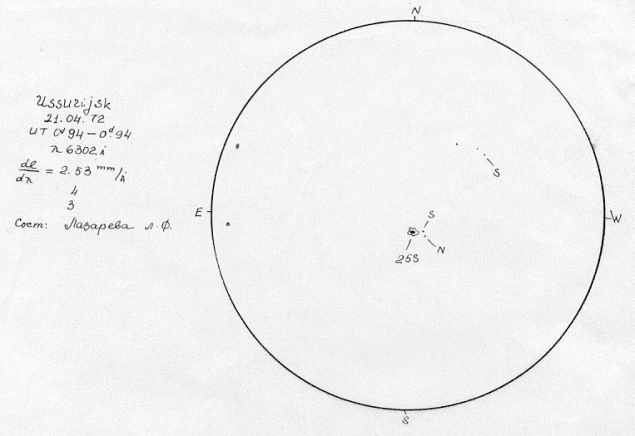 Ussurijsk
21.04.72
UT 0ᵈ94 – 0ᵈ.94
λ 6302 i
dl/dλ = 2.53 mm/Å
4
3
Сост: Лазарева Л.Ф.
N
E
W
S
S
S
N
25S